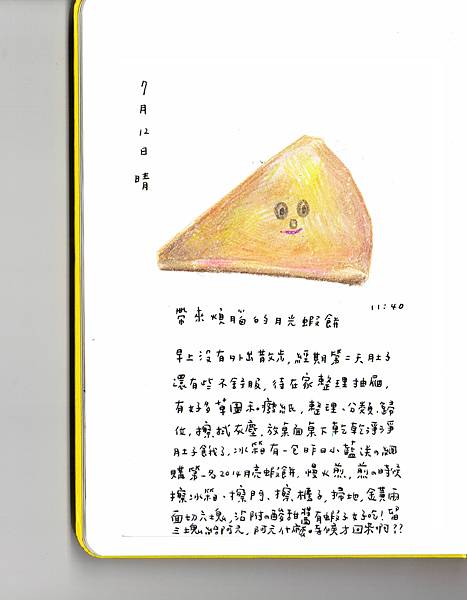 7月12日 晴
11:40
帶來煩腦的月亮蝦餅
早上沒有外出散步,經期第二天肚子
還有些不舒服,待在家整理抽屜,
有好多草圖和廢紙,整理、分類、歸
位,擦拭灰塵,放桌面桌下乾乾淨淨
肚子餓了,冰箱有一包昨日小藍送の網
購第一名2014月亮蝦餅,慢火煎,煎の時候
擦冰箱、擦門、擦櫃子,掃地,金黃兩
面切六塊,沾附の酸甜醬有蝦子好吃!留
三塊給阿元,阿元什麼時候才回來啊??